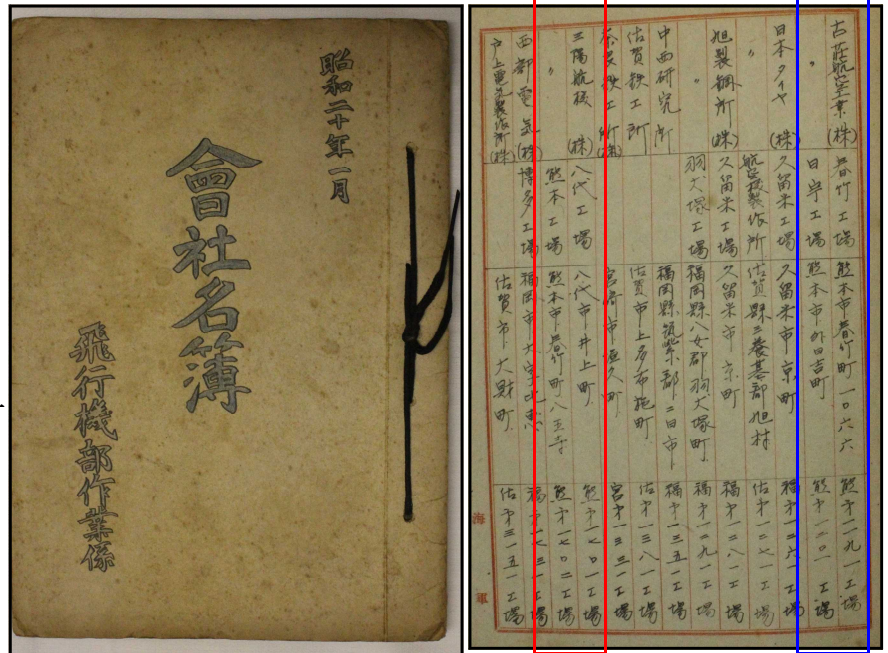 昭和二十年一月
會社名簿
飛行機部作業係
古荘航空業(株) 春竹工場 熊本市春竹町一〇六六 熊才一一九一工場
〃 工場 熊本市外日吉町 熊才一二〇一工場
日本タイヤ(株) 久留米工場 久留米市京町 福才一二六一工場
〃 航空機製作所 佐賀縣三養基郡旭村 佐才一二七一工場
旭製鋼所(株) 久留米工場 久留米市京町 福才一二八一工場
〃 羽犬塚工場 福岡縣八女郡羽犬塚町 福才一二九一工場
中西研究所 福岡縣筑紫郡二日市 福才一三五一工場
佐賀鉄工所 佐賀市上多布施町 佐才一三八一工場
鉄工所(株) 宮崎市恒久町 宮才一三三一工場
三陽航機(株) 八代工場 八代市井上町 熊才一七〇一工場
〃 熊本工場 熊本市春竹町八王寺 熊才一七〇二工場
西部電気(株) 博多工場 福岡市大字 福才一七三一工場
戸上電気製作所(株) 佐賀市大財町 佐才三一五一工場
海軍